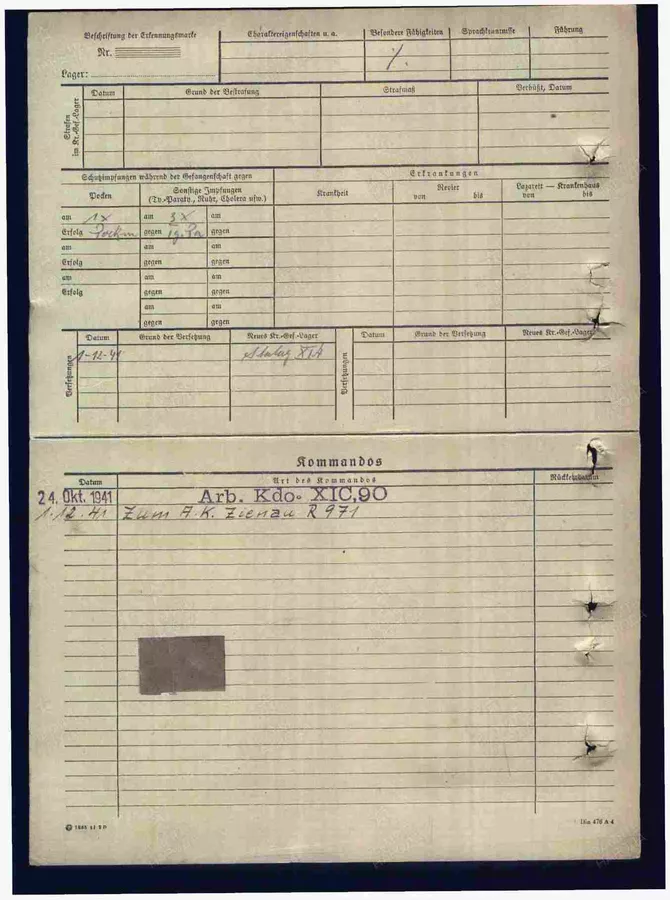 Beschriftung der Erkennungsmarke
Nr.
Lager:
Charaktereigenschaften u. a.
Besondere Fähigkeiten
Sprachkenntnisse
Führung
Strafen im Kr.-Gef.-Lager
Datum
Grund der Bestrafung
Strafmaß
Verbüßt, Datum
Schutzimpfungen während der Gefangenschaft gegen
Erkrankungen
Pocken
Sonstige Impfungen
(Ty.-Paraty., Ruhr, Cholera usw.)
Krankheit
Revier
von bis
Lazarett — Krankenhaus
von bis
am 1x am 3x am
Erfolg Pocken gegen gegen
am am am
Erfolg gegen gegen
am am am
Erfolg gegen gegen
am am
gegen gegen
Versetzungen
Datum
Grund der Versetzung
Neues Kr.-Gef.-Lager
Versetzungen
Datum
Grund der Versetzung
Neues Kr.-Gef.-Lager
1-12-41 Stalag XIA
Kommandos
Datum
Art des Kommandos
24. Okt. 1941 Arb. Kdo. XIC,90
1.12.41 Zum A.K. Zienau R 971
Din 476 A 4